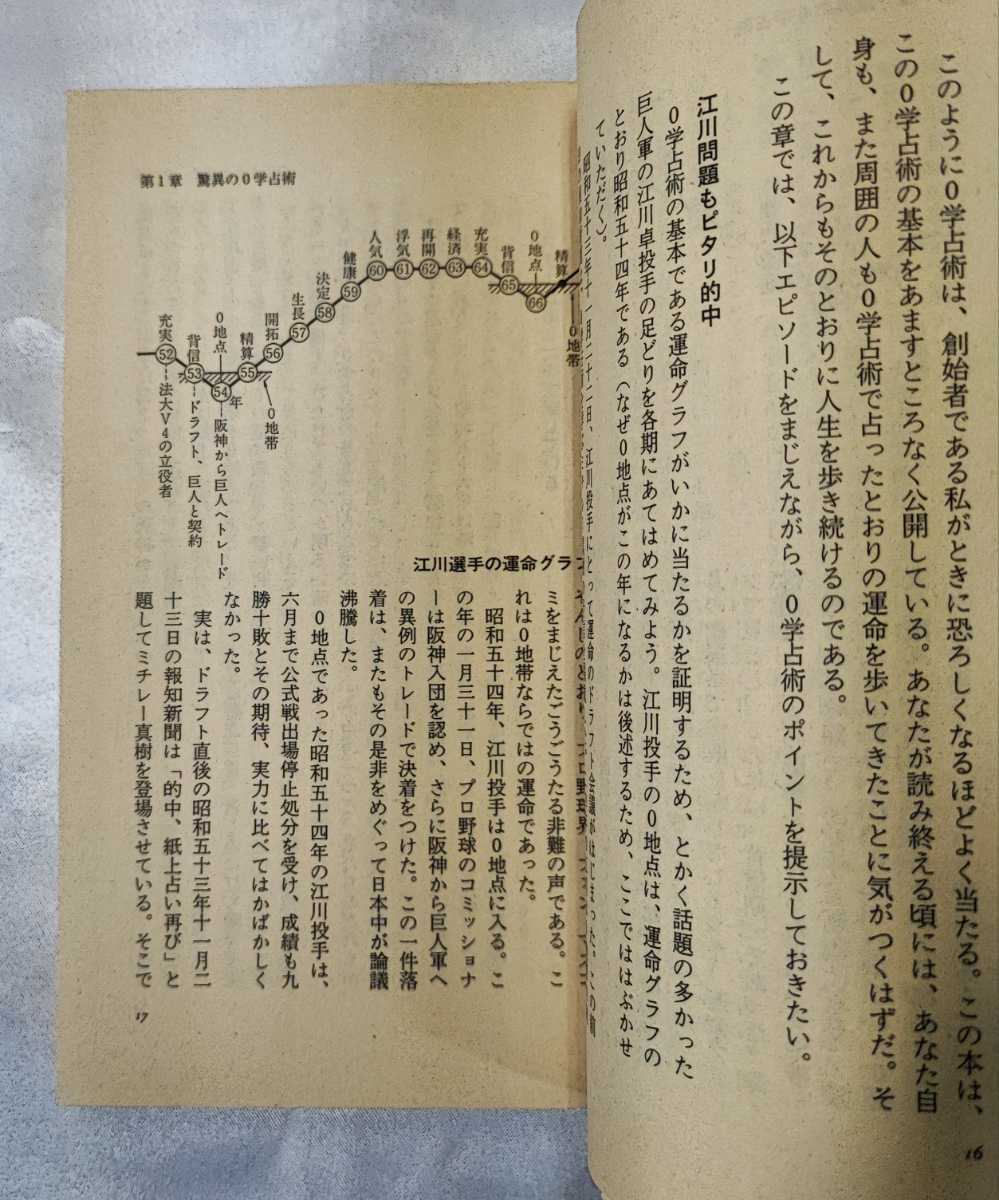 このように0学占術は、創始者である私がときに恐ろしくなるほどよく当たる。この本は、
この0学占術の基本をあますところなく公開している。あなたが読み終える頃には、あなた自
身も、また周囲の人も0学占術で占ったとおりの運命を歩いてきたことに気がつくはずだ。そ
して、これからもそのとおりに人生を歩き続けるのである。
この章では、以下エピソードをまじえながら、0学占術のポイントを提示しておきたい。
江川問題もピタリ的中
0学占術の基本である運命グラフがいかに当たるかを証明するため、とかく話題の多かった
巨人軍の江川卓投手の足どりを各期にあてはめてみよう。江川投手の0地点は、運命グラフの
とおり昭和五十四年である（なぜ0地点がこの年になるかは後述するため、ここでははぶかせ
ていただく）。
昭和五十三年十一月二十二日、江川投手にとって運命のドラフト会議がはじまった。この前
16
第1章 驚異の0学占術
充実
52
法大V4の立役者
背信
53
ドラフト、巨人と契約
0地点
54
年
阪神から巨人へトレード
精算
55
0地帯
開拓
56
生長
57
決定
58
健康
59
人気
60
浮気
61
再開
62
経済
63
充実
64
背信
65
0地点
66
精算
0地帯
江川選手の運命グラフ
ミをまじえたごうごうたる非難の声である。こ
れは0地帯ならではの運命であった。
昭和五十四年、江川投手は0地点に入る。こ
の年の一月三十一日、プロ野球のコミッショナ
ーは阪神入団を認め、さらに阪神から巨人軍へ
の異例のトレードで決着をつけた。この一件落
着は、またもその是非をめぐって日本中が論議
沸騰した。
0地点であった昭和五十四年の江川投手は、
六月まで公式戦出場停止処分を受け、成績も九
勝十敗とその期待、実力に比べてはかばかしく
なかった。
実は、ドラフト直後の昭和五十三年十一月二
十三日の報知新聞は「的中、紙上占い再び」と
題してミチレー真樹を登場させている。そこで
17